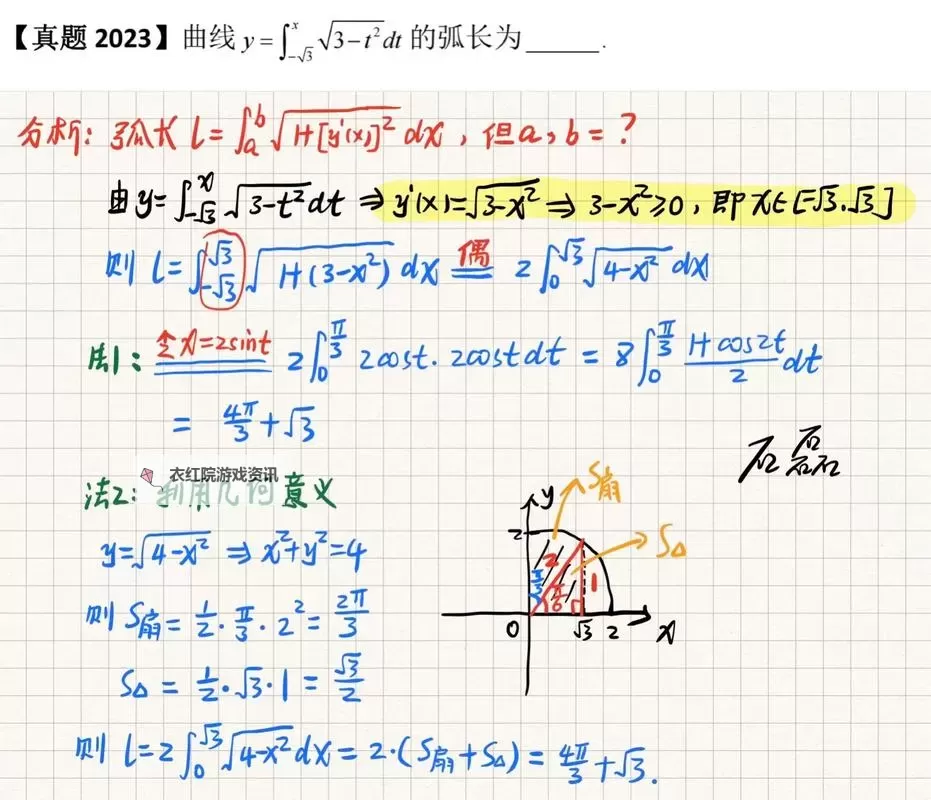 【真题 2023】曲线 y = ∫_{-√3}^{x} √(3-t²) dt 的弧长为______.
分析: 弧长 l = ∫_a^b √(1+[y'(x)]²) dx , 但 a, b = ?
由 y = ∫_{-√3}^{x} √(3-t²) dt ⇒ y'(x) = √(3-x²) ⇒ 3-x² ≥ 0 , 即 x∈[-√3, √3]
则 l = ∫_{-√3}^{√3} √(1+(3-x²)) dx 偶= 2∫_0^{√3} √(4-x²) dx
法1: 令x=2sint 2∫_0^{π/3} 2cost·2cost dt = 8∫_0^{π/3} (1+cos2t)/2 dt
= 4π/3 + √3
石磊
衣红院游戏资讯
法2: 利用几何意义
y = √(4-x²) ⇒ x²+y²=4
则 S扇 = 1/2 · π/3 · 2² = 2π/3
S△ = 1/2 · √3 · 1 = √3/2
y S扇
2 2 S△
π/3 π/6 1
0 √3 2 x
则 l = 2∫_0^{√3} √(4-x²) dx = 2·(S扇 + S△) = 4π/3 + √3.